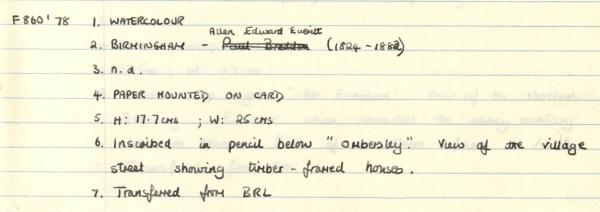 F860'78 1. WATERCOLOUR
Allen Edward Everitt
2. BIRMINGHAM - Paul Braddon (1824-1882)
3. n.d.
4. PAPER MOUNTED ON CARD
5. H: 17.7 CMS ; W: 25 CMS
6. Inscribed in pencil below "Ombersley". View of the village
street showing timber-framed houses.
7. Transferred from BRL